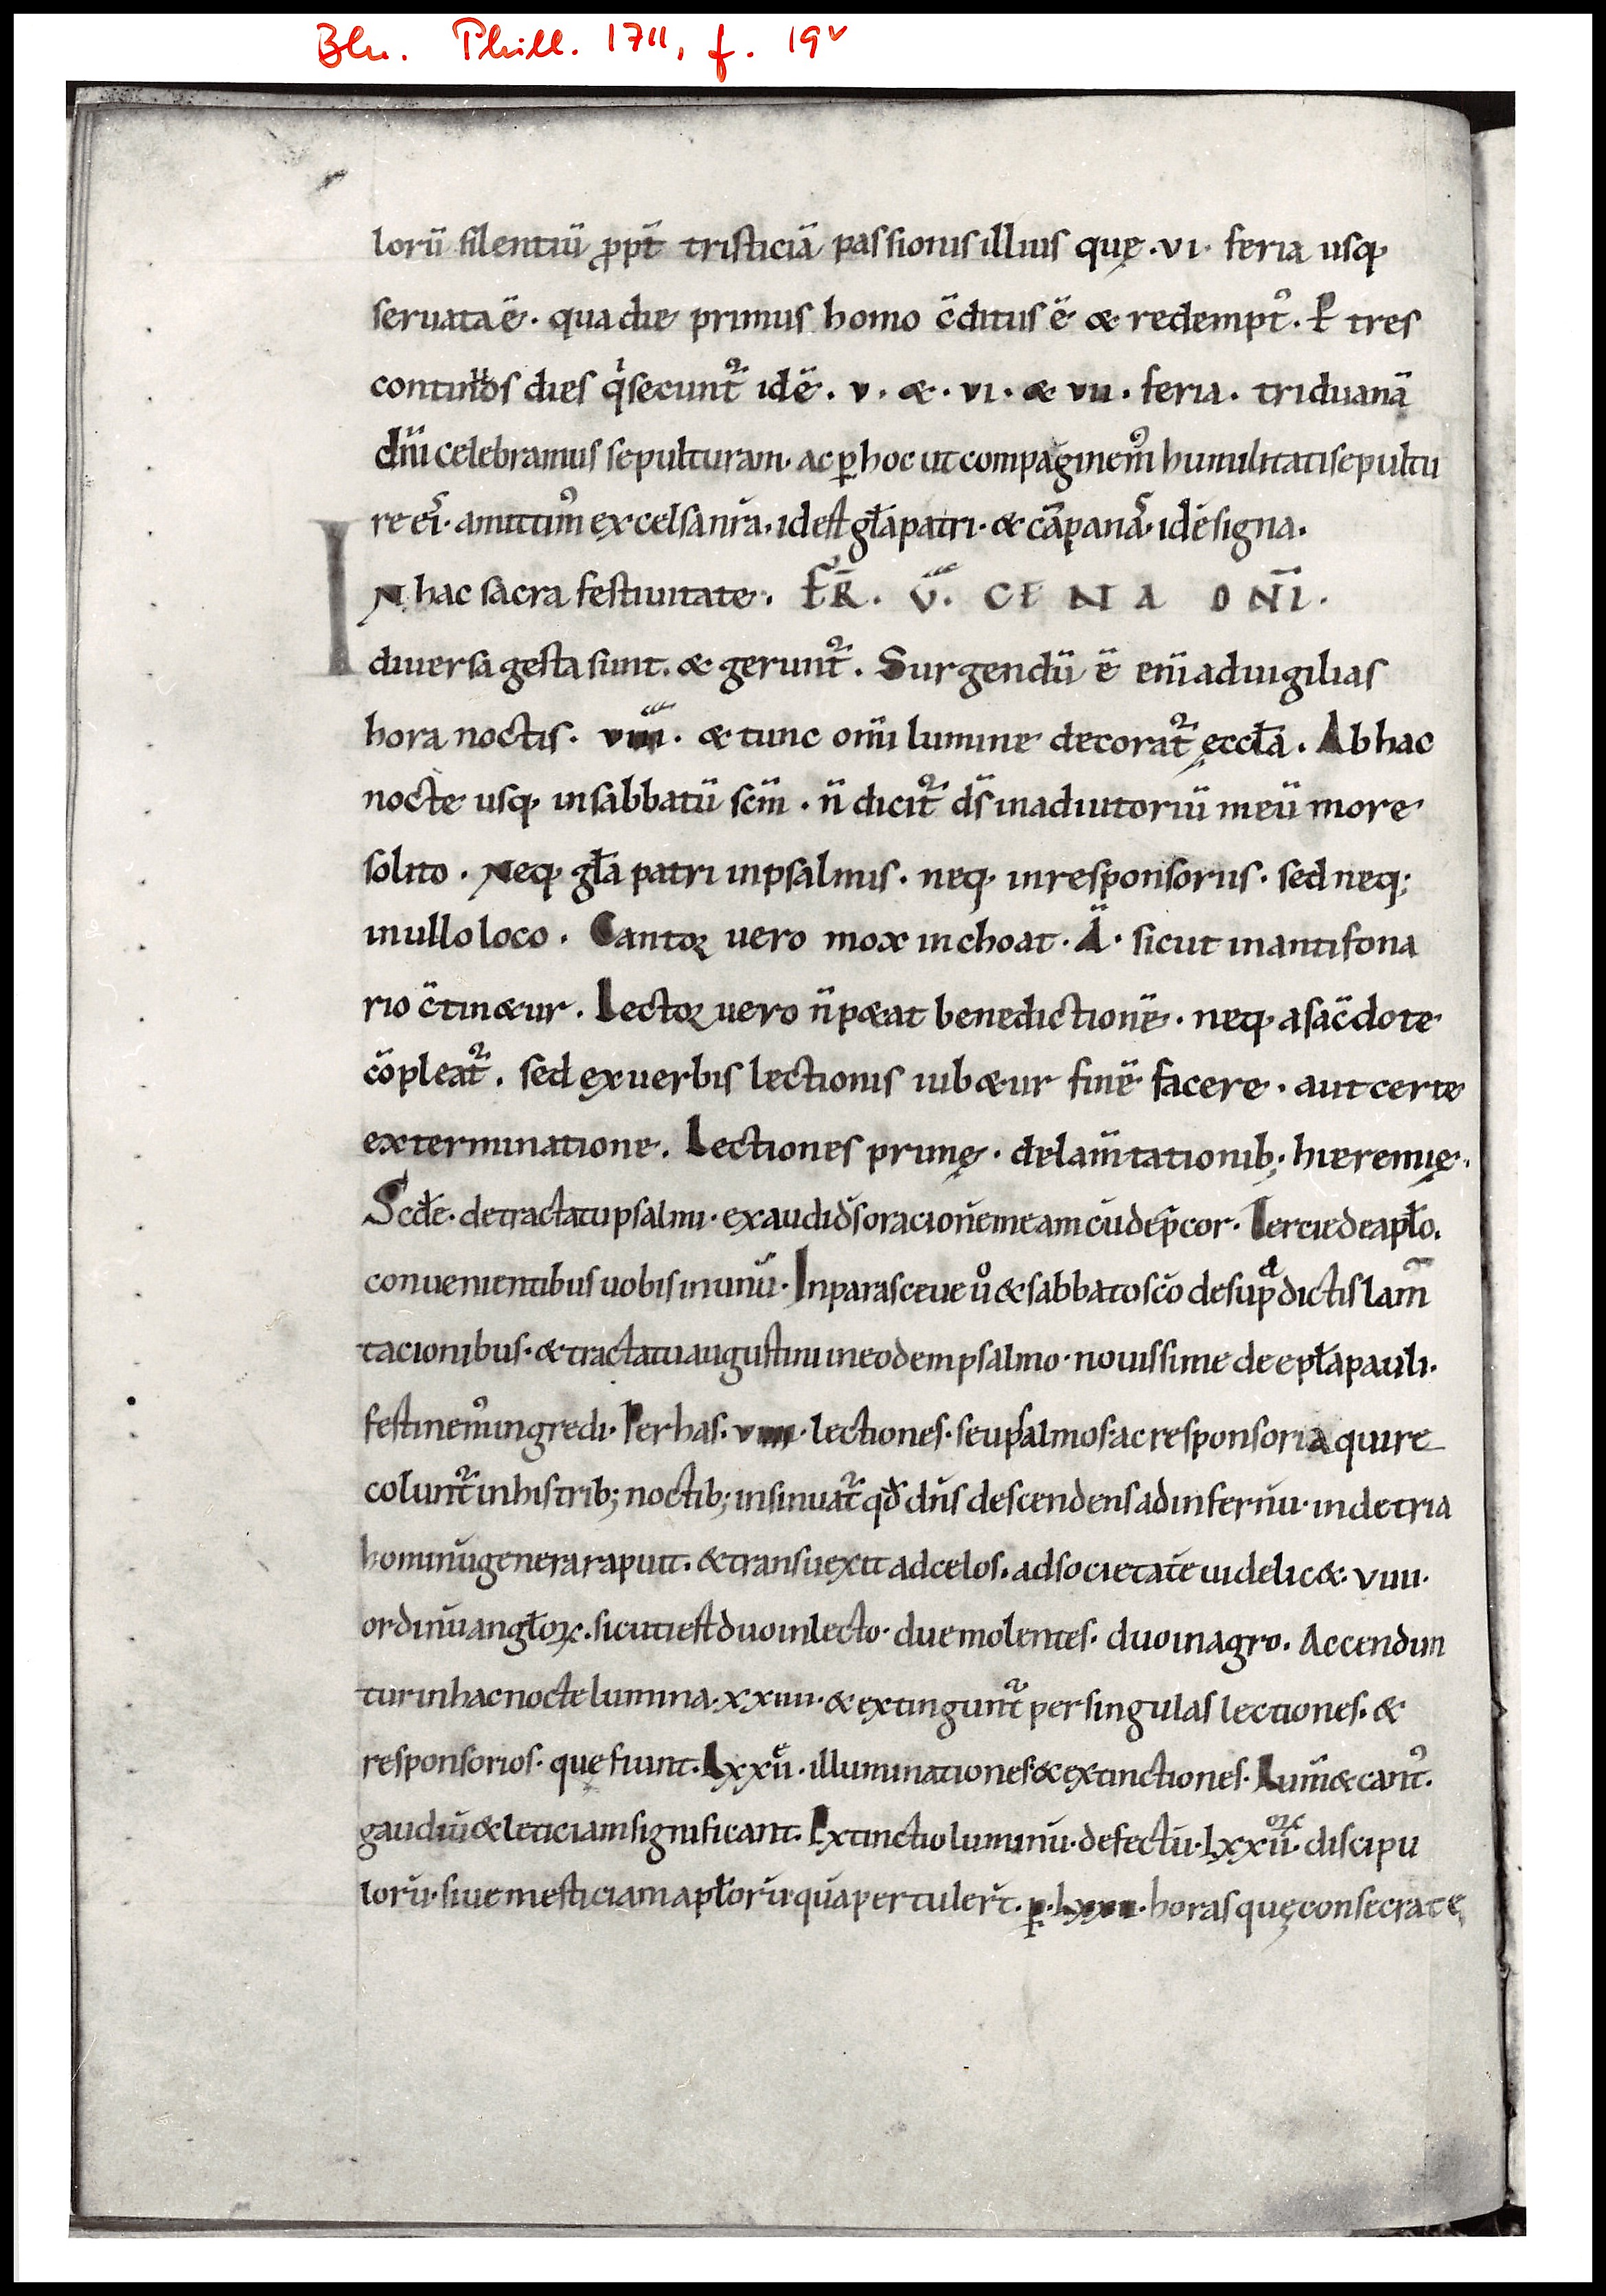 Bln. Phill. 1711, f. 19v
lorū silentiū ꝓpt̄ tristiciā passionis illius quę · vi · feria usq;
seruata ē · qua die primus homo c̄ditus ē & redempt᷒ · Et tres
continuos dies q' secunt᷑ idē · v · & · vi · & vii · feria · triduanā
dn̄i celebramus sepulturam · ac ꝑ hoc ut compaginem᷒ humilitati sepultu
re ei᷒ · amittim᷒ excelsa nr̄a · id est gl̄a patri · & cāpana᷒ · id ē signa ·
In hac sacra festiuitate · FR̄ · V̄ · CENA DN̄I ·
diuersa gesta sunt · & gerunt᷑ · Surgendū ē eni̅ ad uigilias
hora noctis · viii · & tunc om̄i lumine decorat᷑ ęccl̄a · Ab hac
nocte usq; in sabbatū sc̄m · n̄ dicit᷑ ds̄ in adiutoriū meū more
solito · Neq; gl̄a patri in psalmis · neq; in responsoriis · sed neq;
in ullo loco · Cantor uero mox inchoat · Ā · sicut in antifona
rio c̄tin&ur · Lector uero n̄ p&at benedictionē · neq; a sac̄dote
cōpleat᷑ · sed ex uerbis lectionis iub&ur finē facere · aut certe
ex terminatione · Lectiones primę · de lam̄tationib; hieremię ·
Scd̄e · de tractatu psalmi · exaudi ds̄ orationē meam cū dep̄cor · Tercie de apl̄o ·
conuenientibus uobis in unū · In parasceue u° & sabbato sc̄o de sup̄dictis lam̄
tacionibus · & tractatu augustini in eodem psalmo · nouissime de epl̄a pauli ·
festinem᷒ ingredi · Per has · viiii · lectiones · seu psalmos · ac responsoria qui re
colunt᷑ in his trib; noctib; insinuat᷑ qd̄ dn̄s descendens ad infernū · inde tria
hominū genera rapuit · & transuexit ad celos · ad societatē uidelic& · viiii ·
ordinū angl̄oꝝ · sicuti est duo in lecto · due molentes · duo in agro · Accendun
tur in hac nocte lumina · xxiiii · & extingunt᷑ per singulas lectiones · &
responsorios · quę fiunt · Lxxii · illuminationes & extinctiones · Lumī & cant᷒ ·
gaudiū & leticiam significant · Extinctio luminū · defectū · Lxxii · discipu
lorū · siue mesticiam apl̄orū quā pertulert̄ · ꝑ · lxxii · horas quę consecratę